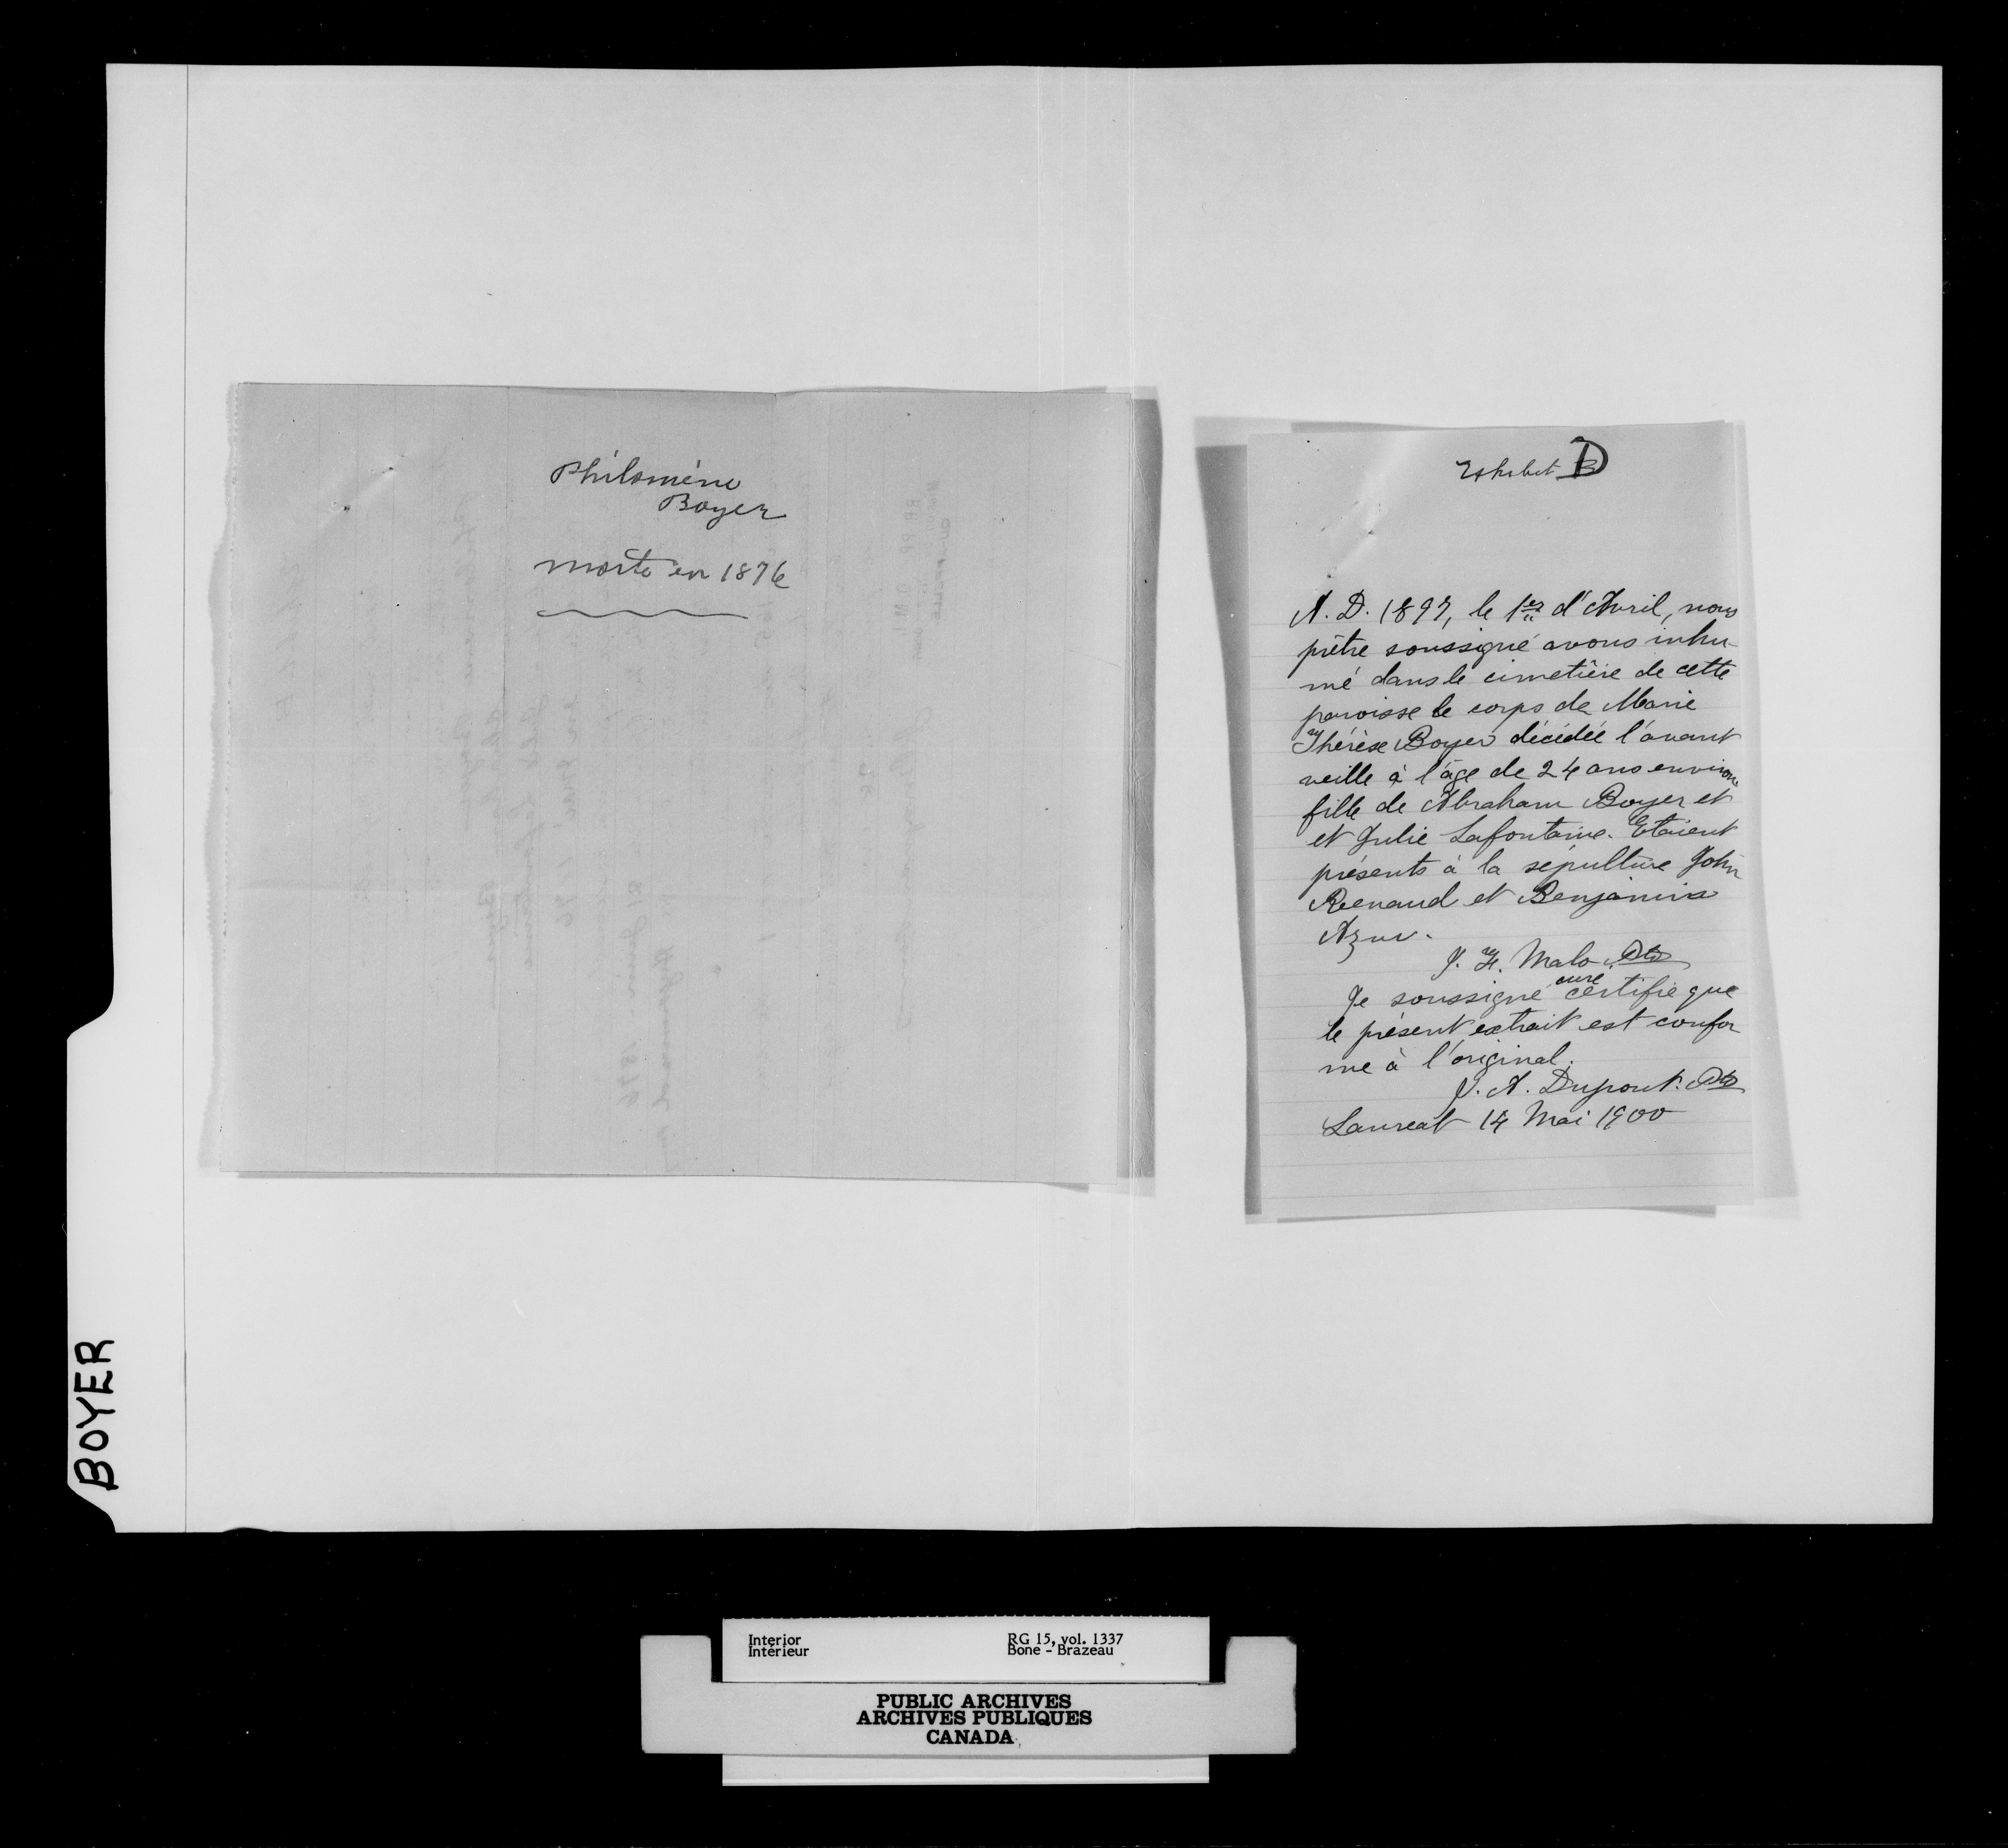 Philomène
Boyer
morte en 1876
Exhibit D
A. D. 1897, le 1er d'Avril, nous
prêtre soussigné avons inhu-
mé dans le cimetière de cette
paroisse le corps de Marie
Thérèse Boyer décédée l'avant
veille à l'âge de 24 ans environ
fille de Abraham Boyer et
et Julie Lafontaine. Etaient
présents à la sépulture John
Renaud et Benjamin
Azur.
J. F. Malo Ptre
Je soussigné curé certifie que
le présent extrait est confor
me à l'original.
J. A. Dupont. Ptre
Laureat 14 Mai 1900
BOYER
Interior
Intérieur
RG 15, vol. 1337
Bone - Brazeau
PUBLIC ARCHIVES
ARCHIVES PUBLIQUES
CANADA